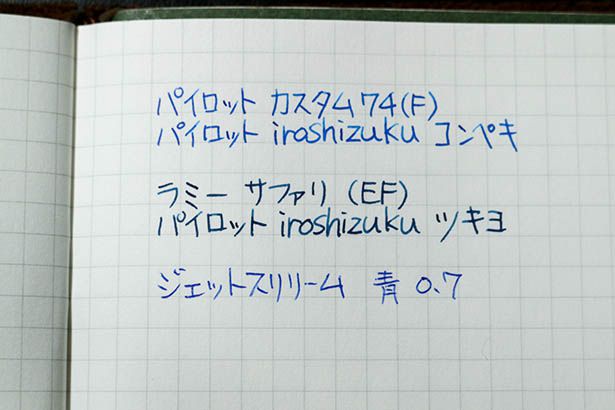 パイロット カスタム74(F)
パイロット iroshizuku コンペキ
ラミー サファリ (EF)
パイロット iroshizuku ツキヨ
ジェットスリリーム 青 0.7